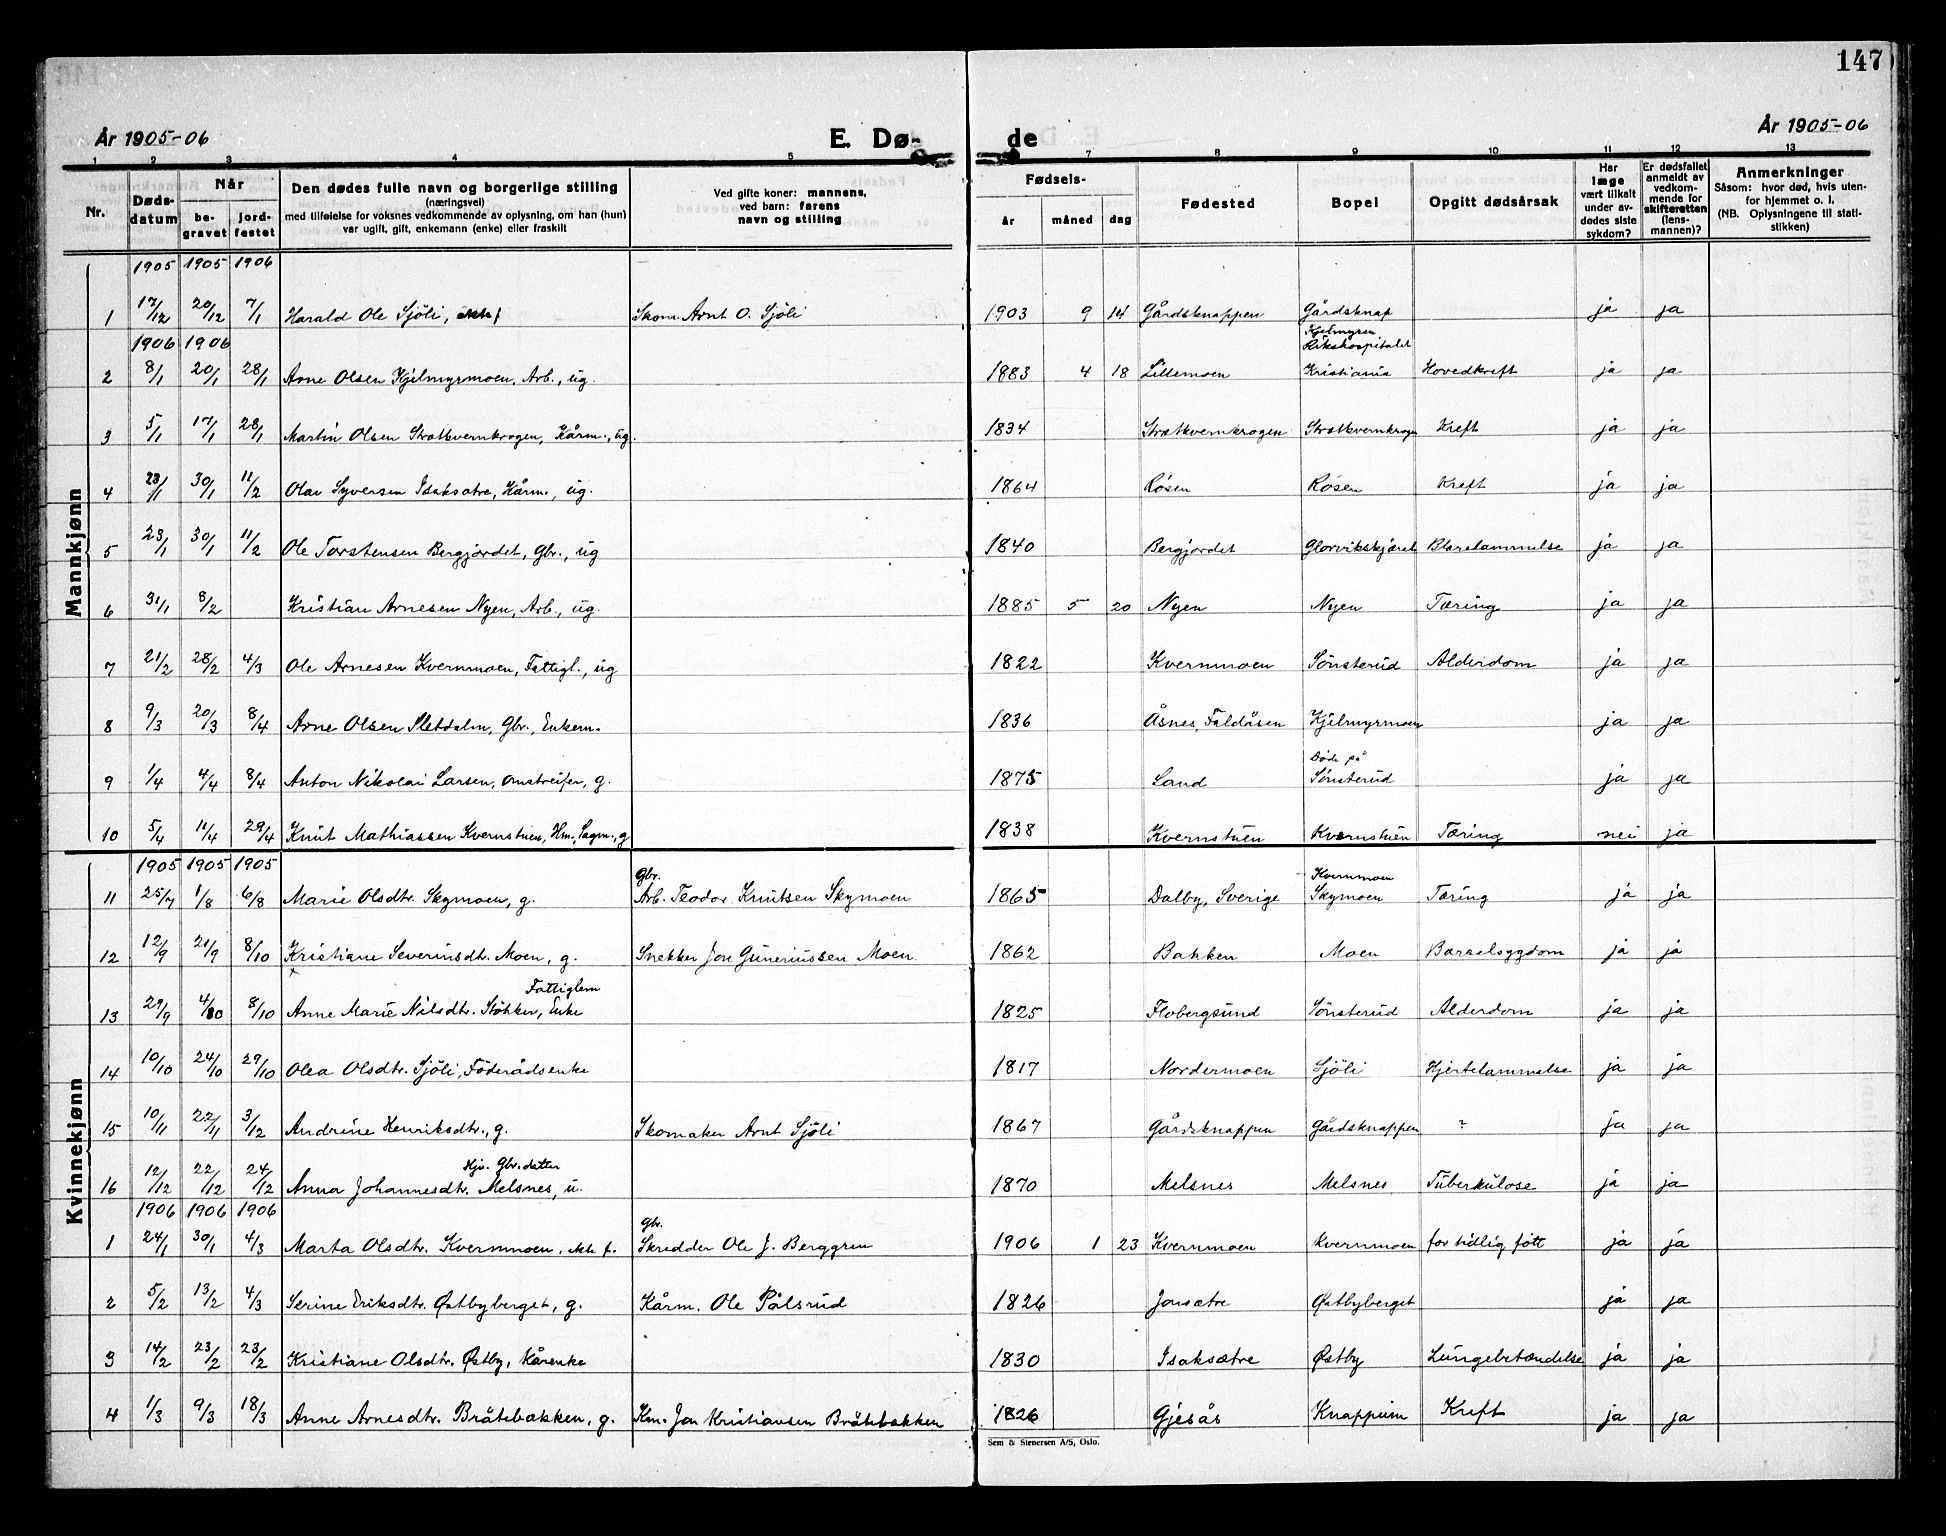 147
År 1905-06
E. Dø-
de
År 1905-06
1 2 3 4 5 7 8 9 10 11 12 13
Nr.
Døds-
datum
Når
be-
gravet
jord-
festet
Den dødes fulle navn og borgerlige stilling
(næringsvei)
med tilføielse for voksnes vedkommende av oplysning, om han (hun)
var ugift, gift, enkemann (enke) eller fraskilt
Ved gifte koner: mannens,
ved barn: farens
navn og stilling
Fødsels-
år måned dag
Fødested
Bopel
Opgitt dødsårsak
Har
læge
vært tilkalt
under av-
dødes siste
sykdom?
Er dødsfallet
anmeldt av
vedkom-
mende for
skifteretten
(lens-
mannen)?
Anmerkninger
Såsom: hvor død, hvis uten-
for hjemmet o. l.
(NB. Oplysningene til stati-
stikken)
Mannkjønn
1905 1905 1906
1 17/12 20/12 7/1 Harald Ole Sjöli, Skom. Arnt O. Sjöli 1903 9 14 Gårdsknappen Gårdsknap ja ja
1906 1906
Kjelmyren
Rikshospitalet
2 8/1 20/1 28/1 Arne Olsen Kjelmyrmoen, Arb., ug. 1883 4 18 Lillemoen Kristiania Hovedkreft ja ja
3 5/1 17/1 28/1 Martin Olsen Strætkvernkrogen, Kårm., ug. 1834 Strætkvernkrogen Strætkvernkrogn Kreft ja ja
4 23/1 30/1 11/2 Olav Syversen Isaksætre, Kårm., ug. 1864 Røsen Røsen Kreft ja ja
5 23/1 30/1 11/2 Ole Torstensen Bergjordet, Gbr., ug 1840 Bergjordet Glorvikskjæret Blærelammelse ja ja
6 31/1 8/2 Kristian Arnesen Nyen, Arb., ug. 1885 5 20 Nyen Nyen Tæring ja ja
7 21/2 28/2 4/3 Ole Arnesen Kvernmoen, Fattigl., ug 1822 Kvernmoen Sönsterud Alderdom ja ja
8 9/3 20/3 8/4 Arne Olsen Sletdalm, Gbr., Enkem. 1836 Åsnes, Faldåsen Kjelmyrmoen ja ja
Döde på
9 1/4 4/4 8/4 Anton Nikolai Larsen, omstreifer, g. 1875 Land Sönsterud ja ja
10 5/4 11/4 29/4 Knut Mathiassen Kvernstuen, Hm., Sagm., g 1838 Kvernstuen Kvernstuen Tæring nei ja
Kvinnekjønn
1905 1905 1905
Gbr.
Kvernmoen
11 25/7 1/8 6/8 Marie Olsdtr. Skymoen, g. Arb. Teodor Knutsen Skymoen 1865 Dalby, Sverige Skymoen Tæring ja ja
12 12/9 21/9 8/10 Kristiane Severinsdtr. Moen, g. Snekker Jon Guneriussen Moen 1862 Bakken Moen Barselsygdom ja ja
Fattiglem
13 29/9 4/10 8/10 Anne Marie Nilsdtr. Stökker, Enke 1825 Flobergsund Sönsterud Alderdom ja ja
14 10/10 24/10 29/10 Olea Olsdtr. Sjöli, Föderådsenke 1817 Nordermoen Sjöli Hjertelammelse ja ja
15 10/11 22/11 3/12 Andrine Henriksdtr., g. Skomaker Arnt Sjöli 1867 Gårdsknappen Gårdsknappen ? ja ja
Hjv. Gbr.datter
16 12/12 22/12 24/12 Anna Johannesdtr. Melsnes, u. 1870 Melsnes Melsnes Tuberkulose ja ja
1906 1906 1906
Gbr.
1 24/1 30/1 4/3 Marta Olsdtr. Kvernmoen, ekte f. Skredder Ole J. Berggren 1906 1 23 Kvernmoen Kvernmoen for tidlig fött ja ja
2 5/2 13/2 4/3 Serine Eriksdtr. Østbyberget, g. Kårm. Ole Pålsrud 1826 Jonsætre Østbyberget ja ja
3 14/2 23/2 23/2 Kristiane Olsdtr. Østby, Kårenke 1830 Isaksætre Østby Lungebetændelse ja ja
4 1/3 9/3 18/3 Anne Arnesdtr. Bråtebakken, g. Km. Jon Kristiansen Bråtebakken 1826 Gjesås Knappum Kreft ja ja
Sem & Stenersen A/S, Oslo.